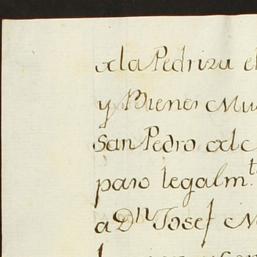 de la Pedriza el
y Bienes Mu
San Pedro de
paso legalm.te
a Dn Josef